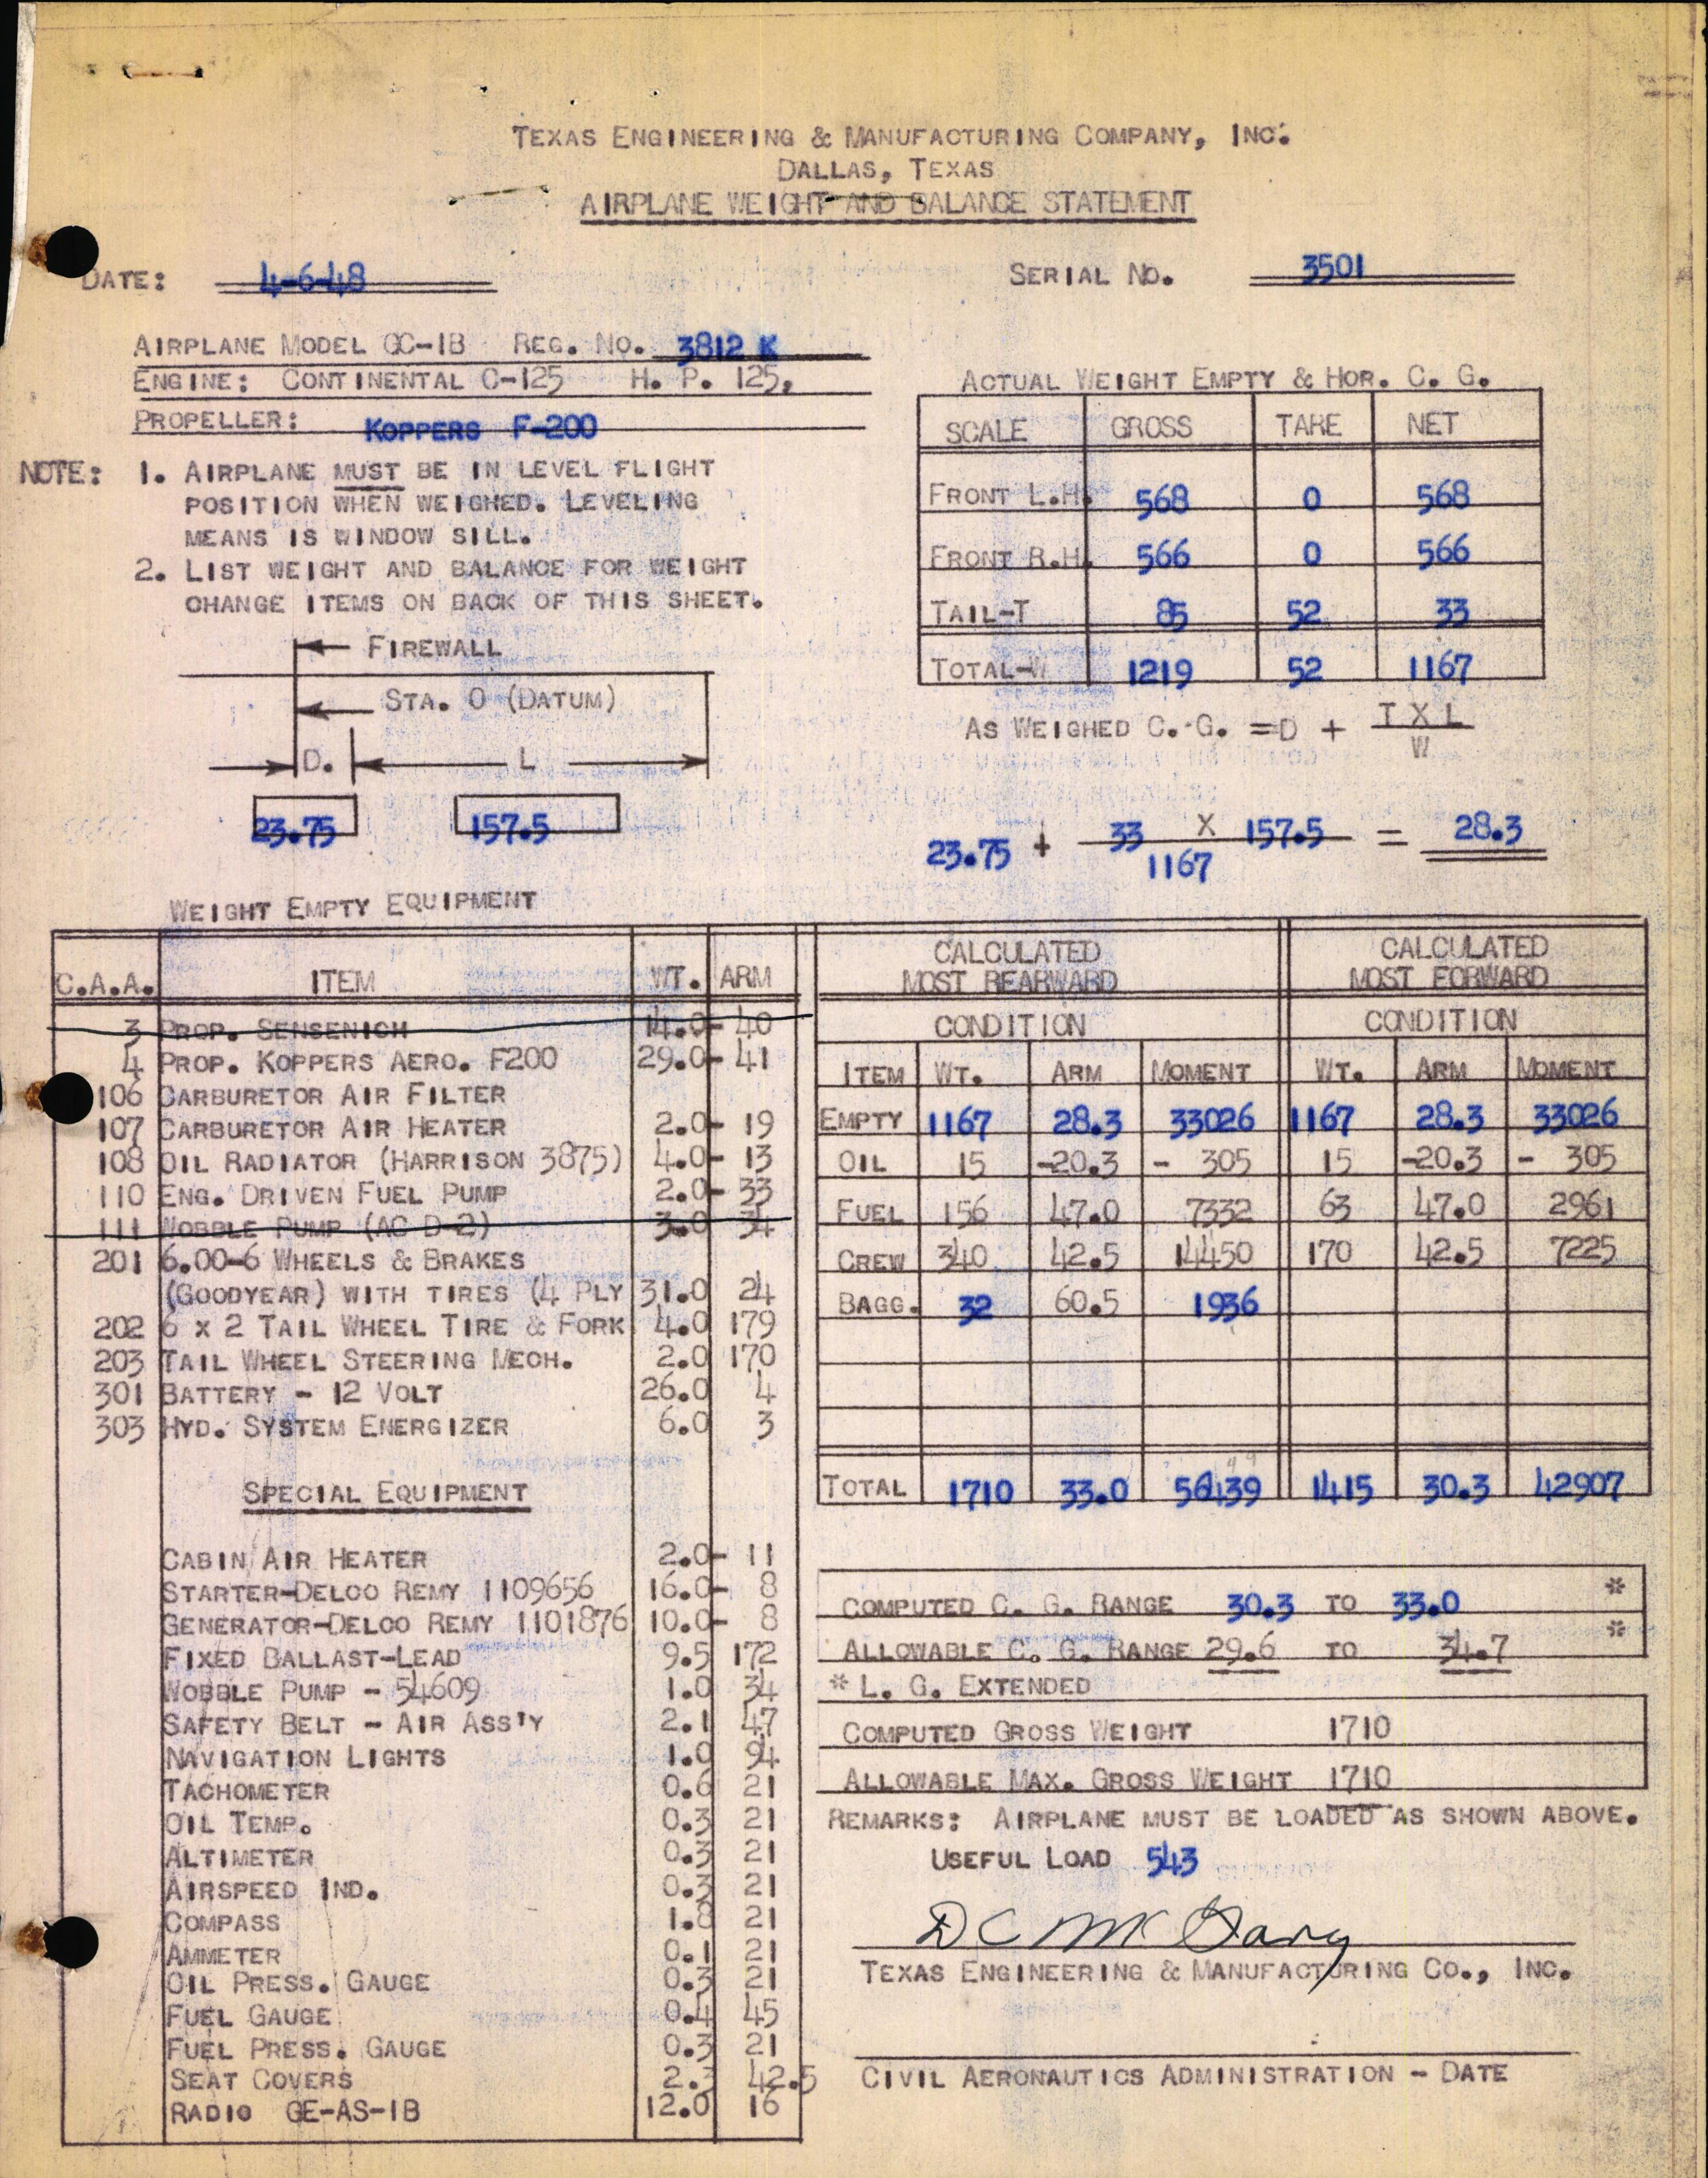 TEXAS ENGINEERING & MANUFACTURING COMPANY, INC.
DALLAS, TEXAS
AIRPLANE WEIGHT AND BALANCE STATEMENT
DATE: 4-6-48 SERIAL NO. 3501
AIRPLANE MODEL GC-1B REG. NO. 3812 K
ENGINE: CONTINENTAL C-125 H. P. 125,
PROPELLER: KOPPERS F-200
NOTE: 1. AIRPLANE MUST BE IN LEVEL FLIGHT
POSITION WHEN WEIGHED. LEVELING
MEANS IS WINDOW SILL.
2. LIST WEIGHT AND BALANCE FOR WEIGHT
CHANGE ITEMS ON BACK OF THIS SHEET.
FIREWALL
STA. O (DATUM)
D. L
23.75 157.5
ACTUAL WEIGHT EMPTY & HOR. C. G.
SCALE GROSS TARE NET
FRONT L.H. 568 0 568
FRONT R.H. 566 0 566
TAIL-T 85 52 33
TOTAL-W 1219 52 1167
AS WEIGHED C. G. = D + T X L
W
23.75 + 33 X 157.5 = 28.3
1167
WEIGHT EMPTY EQUIPMENT
C.A.A. ITEM WT. ARM
3 PROP. SENSENICH 14.0 - 40
4 PROP. KOPPERS AERO. F200 29.0 - 41
106 CARBURETOR AIR FILTER
107 CARBURETOR AIR HEATER 2.0 - 19
108 OIL RADIATOR (HARRISON 3875) 4.0 - 13
110 ENG. DRIVEN FUEL PUMP 2.0 - 33
111 WOBBLE PUMP (AC D-2) 3.0 34
201 6.00-6 WHEELS & BRAKES
(GOODYEAR) WITH TIRES (4 PLY 31.0 24
202 6 X 2 TAIL WHEEL TIRE & FORK 4.0 179
203 TAIL WHEEL STEERING MECH. 2.0 170
301 BATTERY - 12 VOLT 26.0 4
303 HYD. SYSTEM ENERGIZER 6.0 3
SPECIAL EQUIPMENT
CABIN AIR HEATER 2.0 - 11
STARTER-DELCO REMY 1109656 16.0 - 8
GENERATOR-DELCO REMY 1101876 10.0 - 8
FIXED BALLAST-LEAD 9.5 172
WOBBLE PUMP - 54609 1.0 34
SAFETY BELT - AIR ASS'Y 2.1 47
NAVIGATION LIGHTS 1.0 94
TACHOMETER 0.6 21
OIL TEMP. 0.3 21
ALTIMETER 0.3 21
AIRSPEED IND. 0.3 21
COMPASS 1.8 21
AMMETER 0.1 21
OIL PRESS. GAUGE 0.3 21
FUEL GAUGE 0.4 45
FUEL PRESS. GAUGE 0.3 21
SEAT COVERS 42.5
RADIO GE-AS-1B 12.0 16
CALCULATED MOST REARWARD CONDITION
CALCULATED MOST FORWARD CONDITION
ITEM WT. ARM MOMENT WT. ARM MOMENT
EMPTY 1167 28.3 33026 1167 28.3 33026
OIL 15 -20.3 - 305 15 -20.3 - 305
FUEL 156 47.0 7332 63 47.0 2961
CREW 340 42.5 14450 170 42.5 7225
BAGG. 32 60.5 1936
TOTAL 1710 33.0 56439 1415 30.3 42907
COMPUTED C. G. RANGE 30.3 TO 33.0 *
ALLOWABLE C. G. RANGE 29.6 TO 34.7 *
* L. G. EXTENDED
COMPUTED GROSS WEIGHT 1710
ALLOWABLE MAX. GROSS WEIGHT 1710
REMARKS: AIRPLANE MUST BE LOADED AS SHOWN ABOVE.
USEFUL LOAD 543
D C McGary
TEXAS ENGINEERING & MANUFACTURING CO., INC.
CIVIL AERONAUTICS ADMINISTRATION - DATE